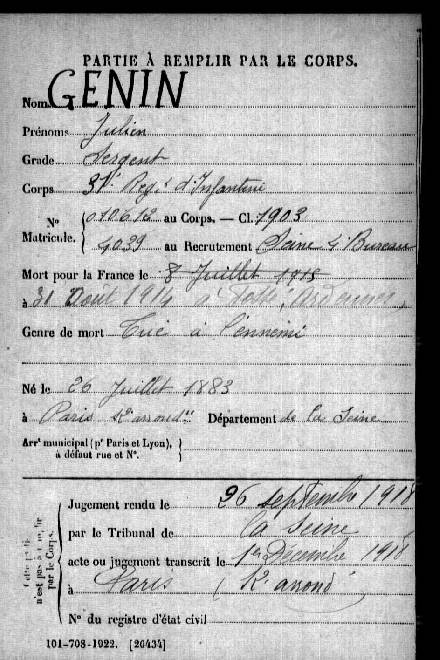 PARTIE À REMPLIR PAR LE CORPS.
Nom GENIN
Prénoms Julien
Grade Sergent
Corps 31e Regt d'Infanterie
Nº Matricule. { 010612 au Corps. — Cl. 1903
4039 au Recrutement Seine 4e Bureau
Mort pour la France le 8 Juillet 1915
à 31 Août 1914 à Ardennes
Genre de mort Tué à l'ennemi
Né le 26 Juillet 1883
à Paris arrondt Département de la Seine
Arrt municipal (pr Paris et Lyon), }
à défaut rue et Nº.
Jugement rendu le 26 septembre 1918
par le Tribunal de la Seine
acte ou jugement transcrit le 1er Décembre 1918
à Paris ( arrondt
Nº du registre d'état civil
n'est pas à remplir
par le Corps.
101-708-1922. [26434]